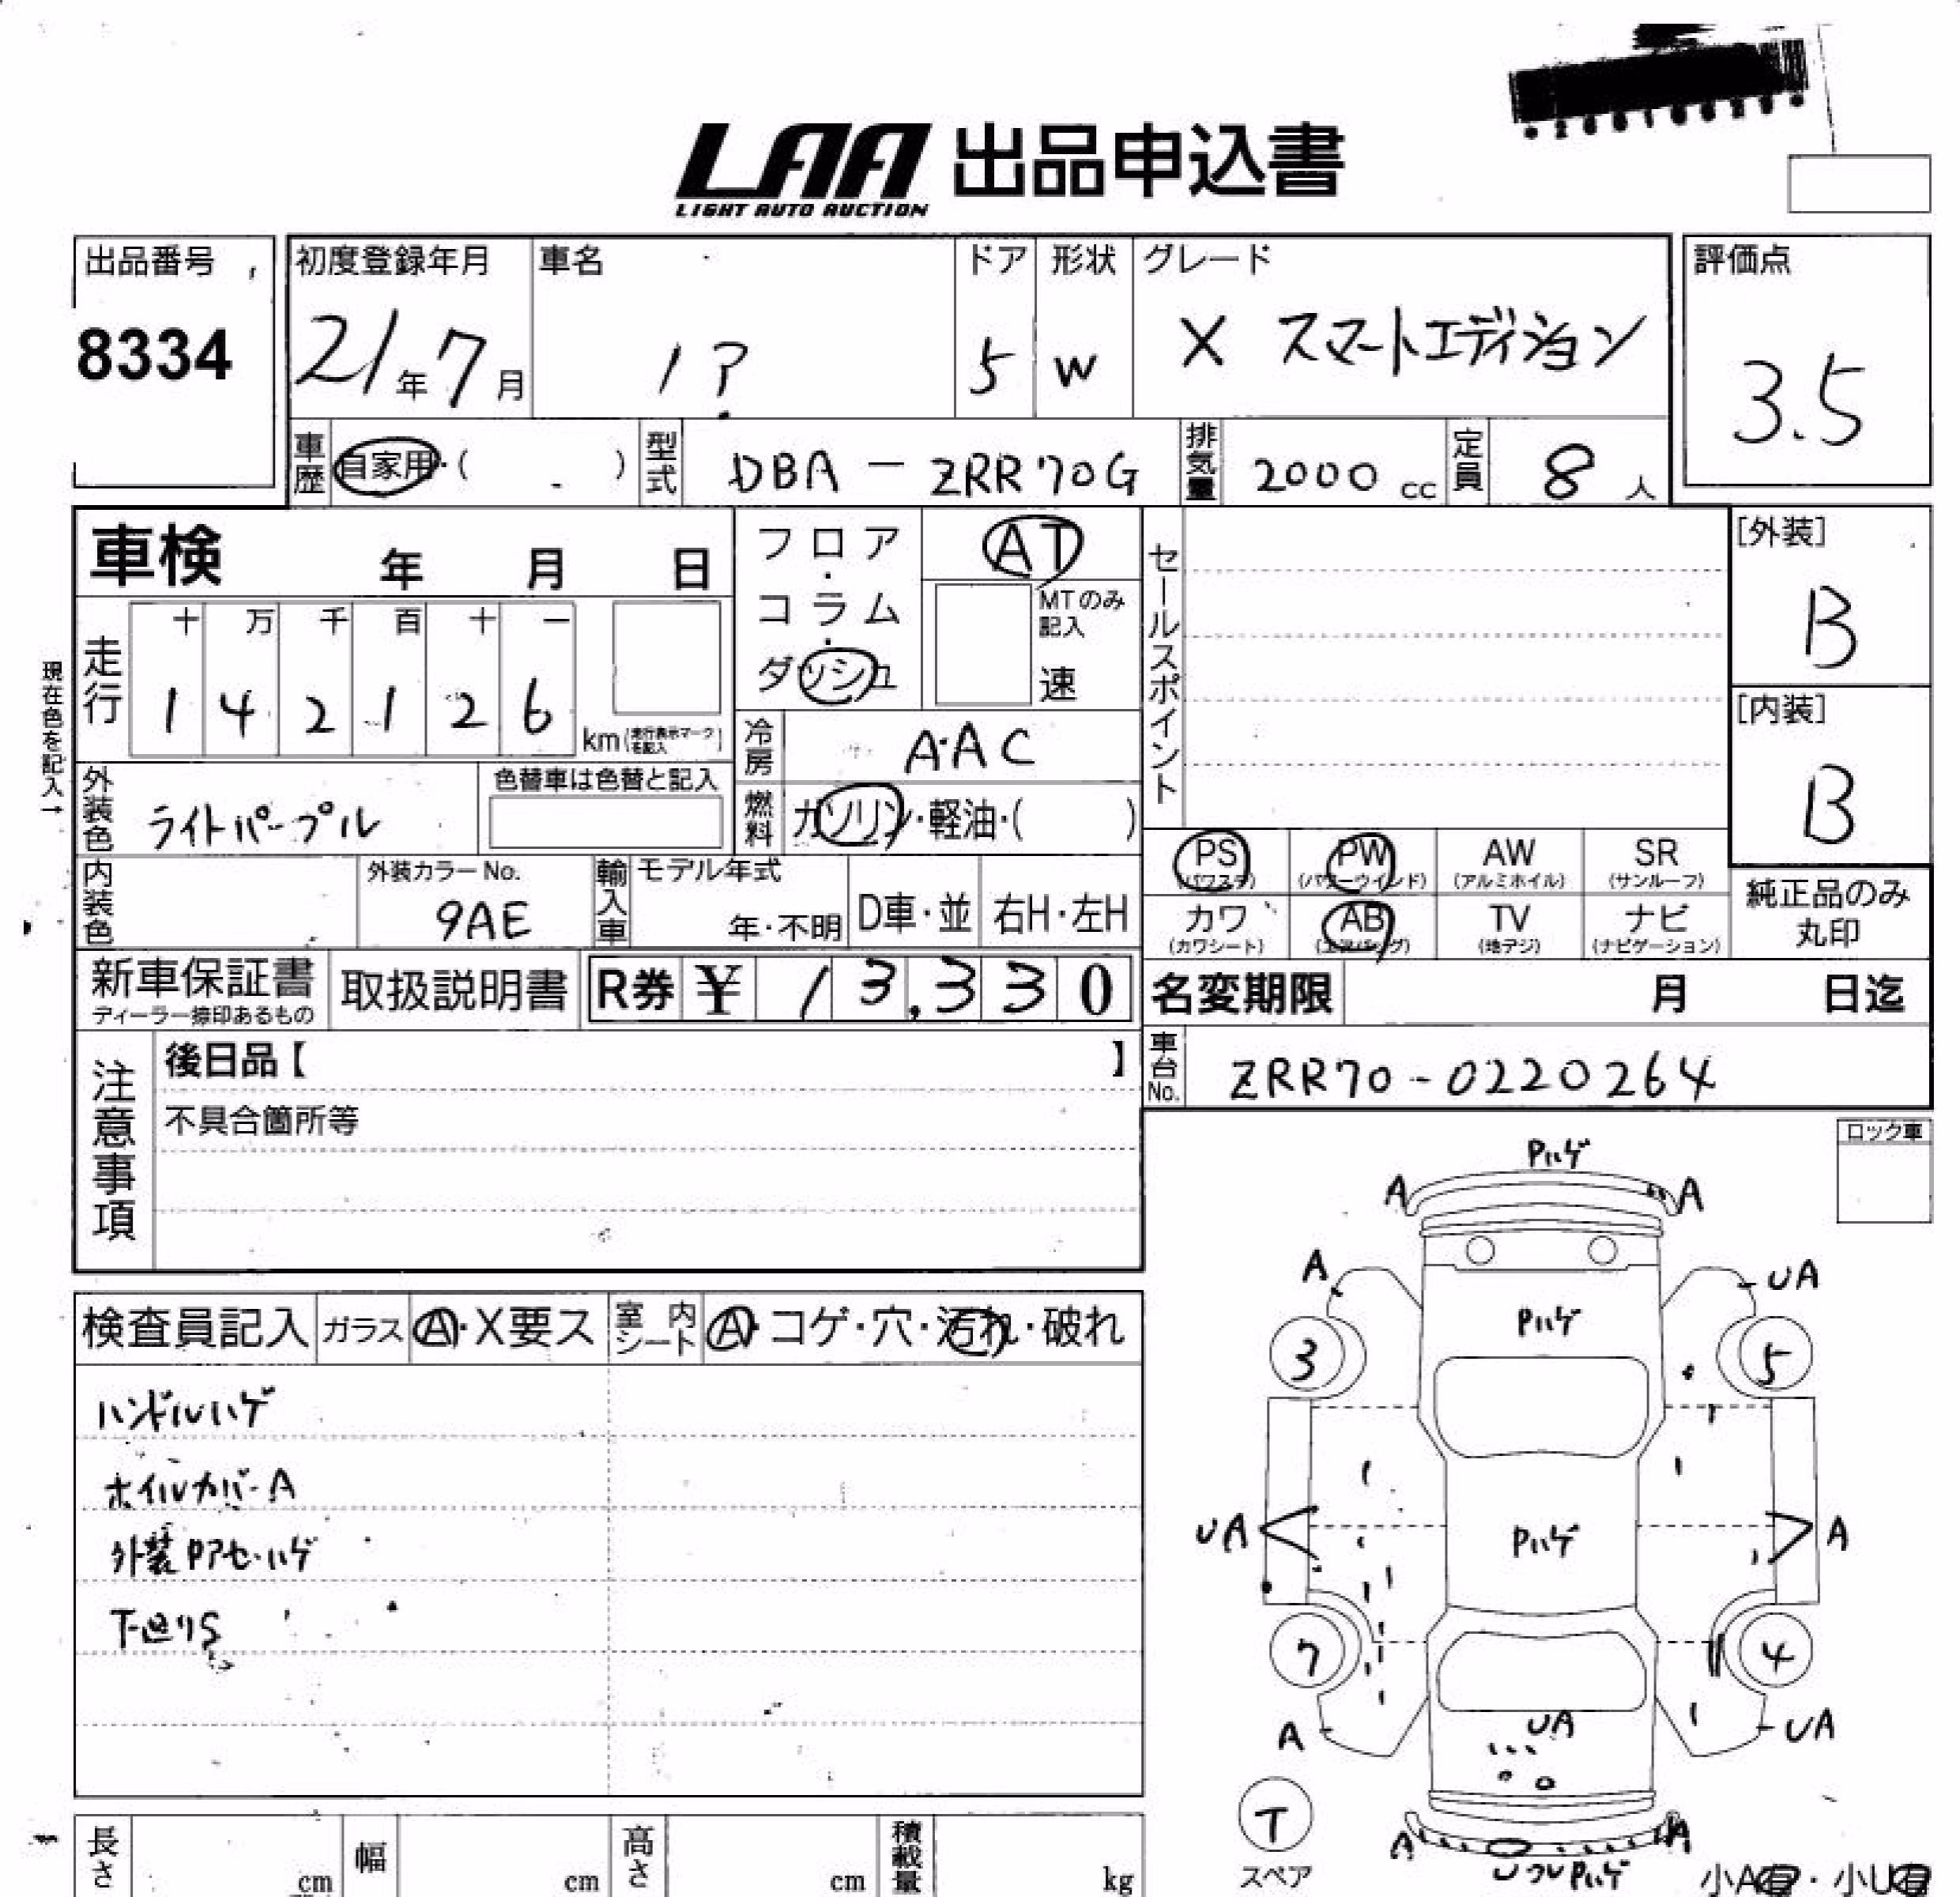 LAA 出品申込書
LIGHT AUTO AUCTION
出品番号
8334
初度登録年月
21年7月
車名
1?
ドア
5
形状
W
グレード
X スマートエディション
評価点
3.5
車歴 自家用・( )
型式 DBA-ZRR70G
排気量 2000cc
定員 8人
車検 年 月 日
フロア・コラム・ダッシュ
AT
MTのみ記入
速
セールスポイント
[外装]
B
[内装]
B
現在色を記入→
走行
十 万 千 百 十 一
1 4 2 1 2 6
km(走行表示マークを記入)
冷房 AAC
外装色 ライトパープル
色替車は色替と記入
燃料 ガソリン・軽油・( )
内装色
外装カラーNo.
9AE
輸入車
モデル年式
年・不明
D車・並
右H・左H
PS
(パワステ)
PW
(パワーウインド)
AW
(アルミホイル)
SR
(サンルーフ)
カワ
(カワシート)
AB
(エアバッグ)
TV
(地デジ)
ナビ
(ナビゲーション)
純正品のみ
丸印
新車保証書
ディーラー捺印あるもの
取扱説明書
R券 ¥ 13,330
名変期限 月 日迄
注意事項
後日品【 】
不具合箇所等
車台No. ZRR70-0220264
ロック車
検査員記入
ガラス
A・X要ス
室内シート
A・コゲ・穴・汚れ・破れ
ハンドルハゲ
ホイルカバーA
外装Pアセ・ハゲ
下回りS
Pハゲ
A A
A UA
Pハゲ
3 5
UA A
Pハゲ
7 4
UA
A UA
T
スペア
A A
Pハゲ
小A有・小U有
長さ cm
幅 cm
高さ cm
積載量 kg